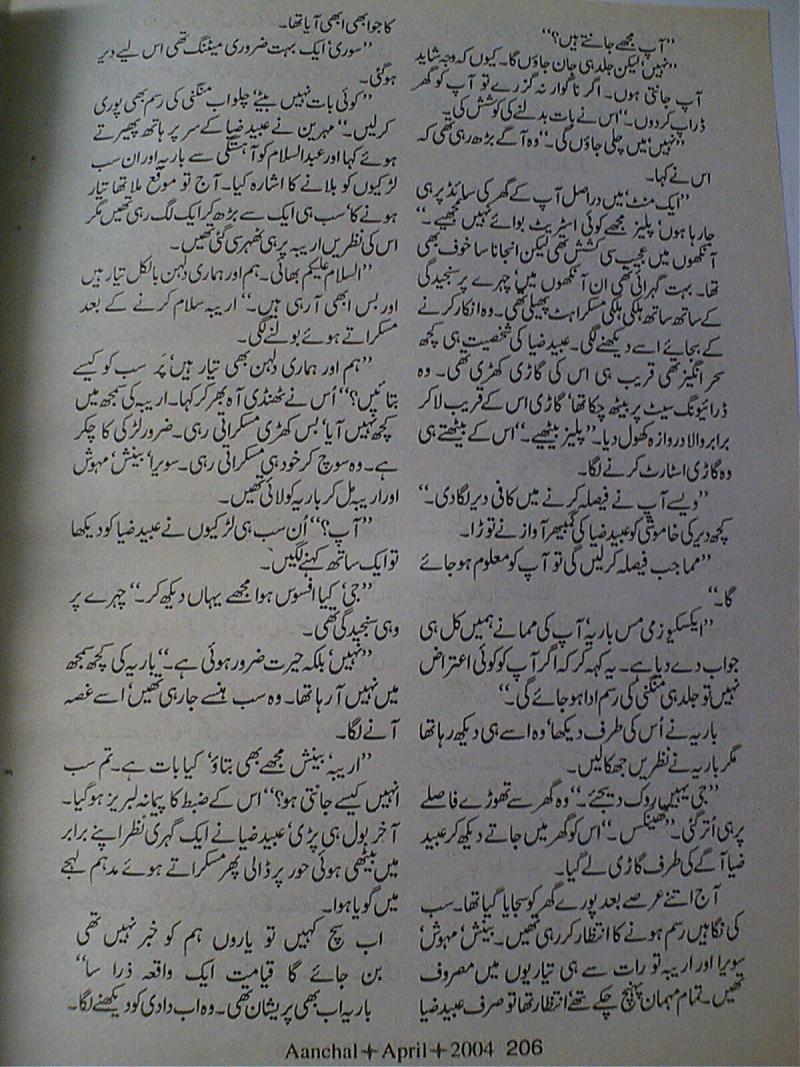 ”آپ مجھے جانتے ہیں؟“
”نہیں‘ لیکن جلد ہی جان جاؤں گا۔ کیوں کہ وجہ شاید
آپ جانتی ہوں۔ اگر ناگوار نہ گزرے تو آپ کو گھر
ڈراپ کردوں۔“ اس نے بات بدلنے کی کوشش کی۔
”نہیں‘ میں چلی جاؤں گی۔“ وہ آگے بڑھ رہی تھی کہ
اس نے کہا۔
”ایک منٹ‘ میں دراصل آپ کے گھر کی سائڈ پر ہی
جارہا ہوں‘ پلیز مجھے کوئی اسٹریٹ بوائے نہیں سمجھیے۔“
آنکھوں میں عجیب سی کشش تھی لیکن انجانا سا خوف بھی
تھا۔ بہت گہرائی تھی ان آنکھوں میں‘ چہرے پر سنجیدگی
کے ساتھ ساتھ ہلکی ہلکی مسکراہٹ پھیلی تھی۔ وہ انکار کرنے
کے بجائے اسے دیکھنے لگی۔ عبید ضیا کی شخصیت ہی کچھ
سحر انگیز تھی قریب ہی اس کی گاڑی کھڑی تھی۔ وہ
ڈرائیونگ سیٹ پر بیٹھ چکا تھا‘ گاڑی اس کے قریب لا کر
برابر والا دروازہ کھول دیا۔ ”پلیز بیٹھیے۔“ اس کے بیٹھتے ہی
وہ گاڑی اسٹارٹ کرنے لگا۔
”ویسے آپ نے فیصلہ کرنے میں کافی دیر لگادی۔“
کچھ دیر کی خاموشی کو عبید ضیا کی گمبھیر آواز نے توڑا۔
”مما جب فیصلہ کرلیں گی تو آپ کو معلوم ہوجائے
گا۔“
”ایکسکیوزمی مس باریہ‘ آپ کی ممانے ہمیں کل ہی
جواب دے دیا ہے۔ یہ کہہ کر کہ اگر آپ کو کوئی اعتراض
نہیں تو جلد ہی منگنی کی رسم ادا ہوجائے گی۔“
باریہ نے اُس کی طرف دیکھا‘ وہ اسے ہی دیکھ رہا تھا
مگر باریہ نے نظریں جھکالیں۔
”جی یہیں روک دیجئے۔“ وہ گھر سے تھوڑے فاصلے
پر ہی اُتر گئی۔ ”تھینکس۔“ اس کو گھر میں جاتے دیکھ کر عبید
ضیا آگے کی طرف گاڑی لے گیا۔
آج اتنے عرصے بعد پورے گھر کو سجایا گیا تھا۔ سب
کی نگاہیں رسم ہونے کا انتظار کررہی تھیں۔ بینش‘ مہوش‘
سویرا اور اریبہ تو رات سے ہی تیاریوں میں مصروف
تھیں۔ تمام مہمان پہنچ چکے تھے‘ انتظار تھا تو صرف عبید ضیا
کا جو ابھی ابھی آیا تھا۔
”سوری‘ ایک بہت ضروری میٹنگ تھی اس لیے دیر
ہوگئی۔
”کوئی بات نہیں بیٹے‘ چلو اب منگنی کی رسم بھی پوری
کرلیں۔“ مہرین نے عبید ضیا کے سر پر ہاتھ پھیرتے
ہوئے کہا اور عبدالسلام کو آہستگی سے باریہ اور ان سب
لڑکیوں کو بلانے کا اشارہ کیا۔ آج تو موقع ملا تھا تیار
ہونے کا‘ سب ہی ایک سے بڑھ کر ایک لگ رہی تھیں مگر
اس کی نظریں اریبہ پر ہی ٹھہر سی گئی تھیں۔
”السلام علیکم بھائی۔ ہم اور ہماری دلہن بالکل تیار ہیں
اور بس ابھی آ رہی ہیں۔“ اریبہ سلام کرنے کے بعد
مسکراتے ہوئے بولنے لگی۔
”ہم اور ہماری دلہن بھی تیار ہیں‘ پَر سب کو کیسے
بتائیں؟“ اُس نے ٹھنڈی آہ بھر کر کہا۔ اریبہ کی سمجھ میں
کچھ نہیں آیا‘ بس کھڑی مسکراتی رہی۔ ضرور لڑکی کا چکر
ہے۔ وہ سوچ کر خود ہی مسکراتی رہی۔ سویرا‘ بینش‘ مہوش
اور اریبہ مل کر باریہ کو لائی تھیں۔
”آپ؟“ اُن سب ہی لڑکیوں نے عبید ضیا کو دیکھا
تو ایک ساتھ کہنے لگیں۔
”جی‘ کیا افسوس ہوا مجھے یہاں دیکھ کر۔“ چہرے پر
وہی سنجیدگی تھی۔
”نہیں‘ بلکہ حیرت ضرور ہوئی ہے۔“ باریہ کی کچھ سمجھ
میں نہیں آ رہا تھا۔ وہ سب ہنسے جا رہی تھیں‘ اسے غصہ
آنے لگا۔
”اریبہ‘ بینش مجھے بھی بتاؤ‘ کیا بات ہے۔ تم سب
انہیں کیسے جانتی ہو؟“ اس کے ضبط کا پیمانہ لبریز ہوگیا۔
آخر بول ہی پڑی‘ عبید ضیا نے ایک گہری نظر اپنے برابر
میں بیٹھی ہوئی حور پر ڈالی پھر مسکراتے ہوئے مدہم لہجے
میں گویا ہوا۔
اب سچ کہیں تو یاروں ہم کو خبر نہیں تھی
بن جائے گا قیامت ایک واقعہ ذرا سا“
باریہ اب بھی پریشان تھی۔ وہ اب دادی کو دیکھنے لگا۔
Aanchal✦April✦2004 206